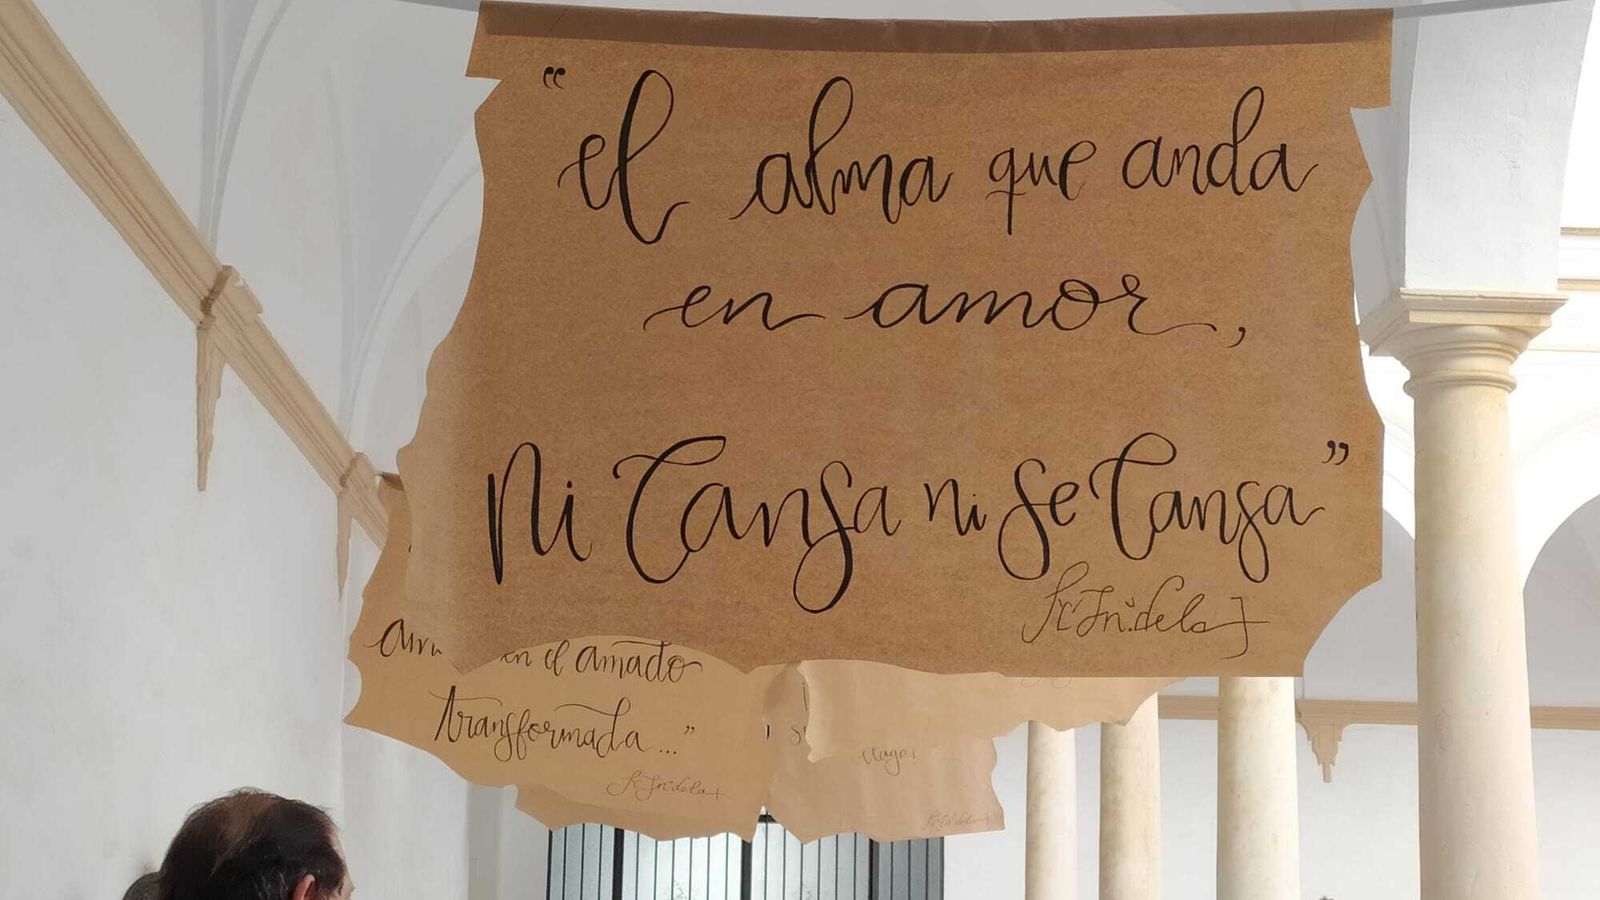 “el alma que anda
en amor,
Ni Cansa ni se Cansa”
Fr. Jn.º de la +
en el amado
transformada...”
Fr. Jn.º de la +
llaga!